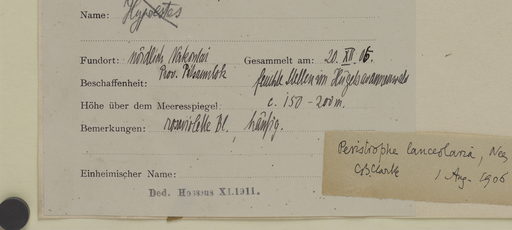 Name: Hypoestes
Fundort: nördlich Nakontai Gesammelt am: 20. XII. 05.
Prov. Pitsanulok
Beschaffenheit: feuchte Stellen im Hügelsavannenwald
Höhe über dem Meeresspiegel: c. 150-200 m.
Bemerkungen: rosaviolette Bl., häufig.
Einheimischer Name:
Ded. Hosseus XI.1911.
Peristrophe lanceolaria, Nees
C.B. Clarke 1 Aug. 1906